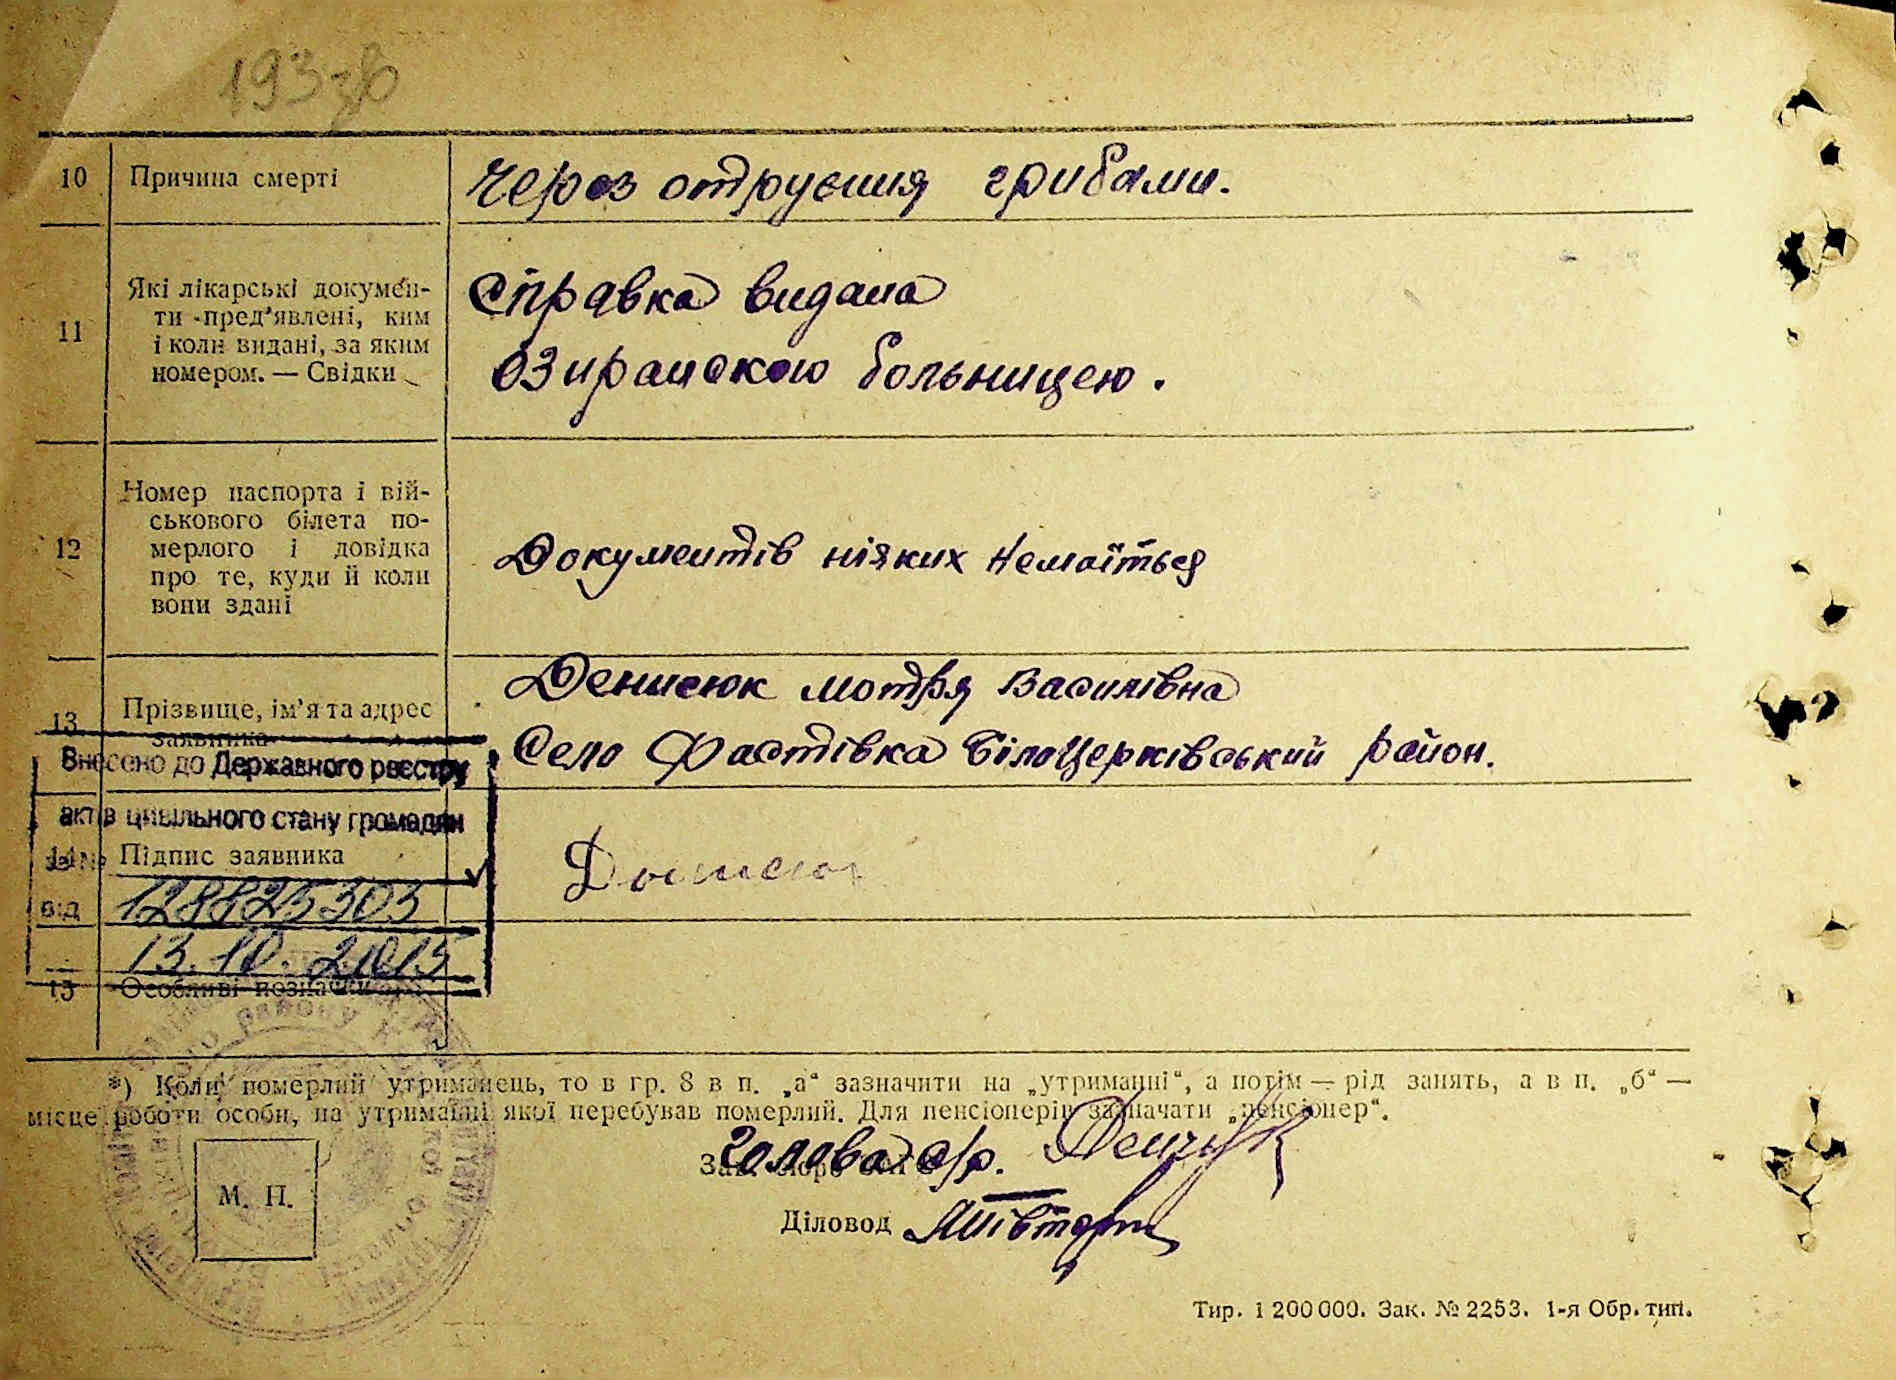 193зв
10 Причина смерті
Через отруєння грибами.
11 Які лікарські докумен-
ти пред'явлені, ким
і коли видані, за яким
номером. — Свідки
Справка видана
Озиранскою больницею.
12 Номер паспорта і вій-
ськового білета по-
мерлого і довідка
про те, куди й коли
вони здані
Документів ніяких немаїться
13 Прізвище, ім'я та адрес
заявника
Денисюк Мотря Василівна
Село Фастівка Білоцерківський район.
Внесено до Державного реєстру
актів цивільного стану громадян
за №
14 Підпис заявника
128825303
від
13.10.2015
15 Особливі позначки
*) Коли померлий утриманець, то в гр. 8 в п. „а“ зазначити на „утриманні“, а потім — рід занять, а в п. „б“ —
місце роботи особи, на утриманні якої перебував померлий. Для пенсіонерів зазначати „пенсіонер“.
Голова с/р.
М. П.
Діловод
Тир. 1 200 000. Зак. № 2253. 1-я Обр. тип.